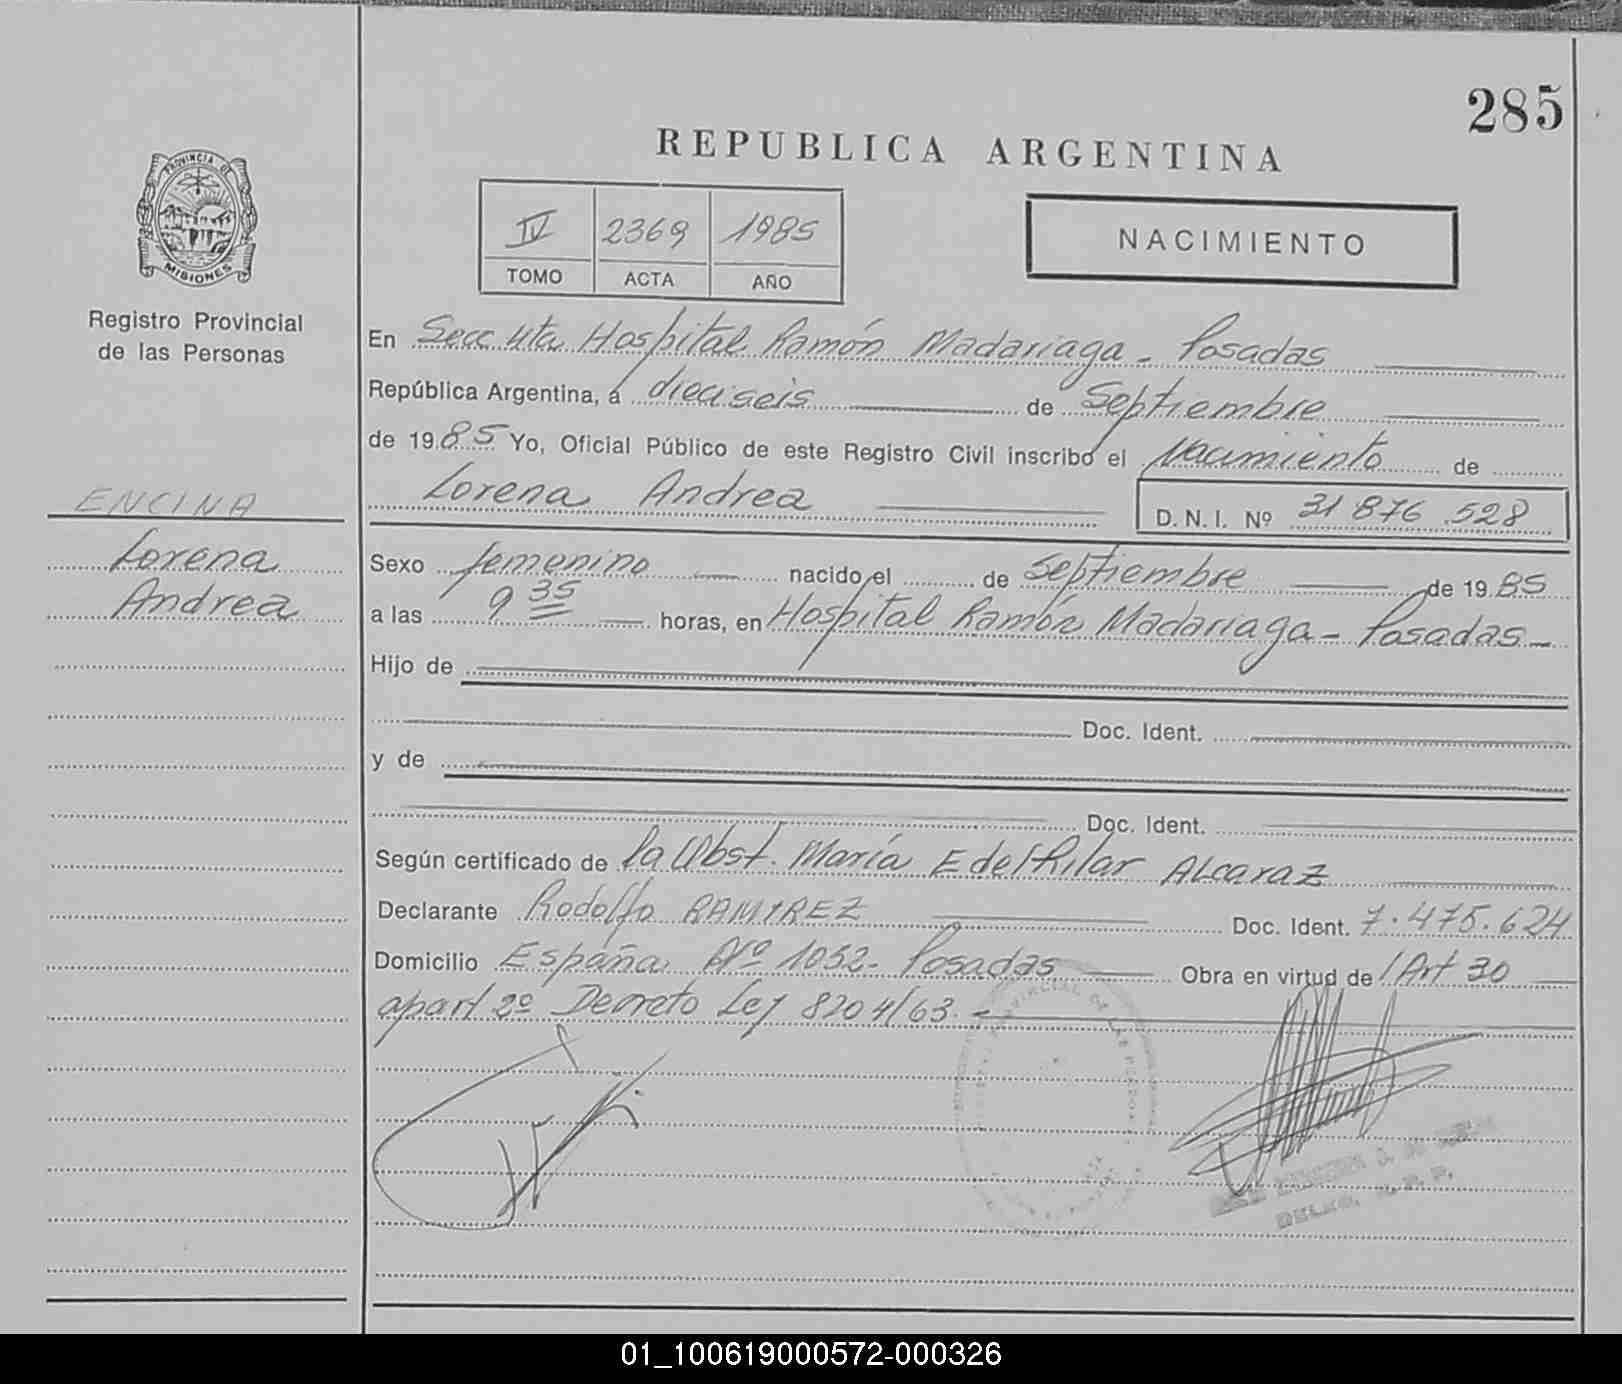 285
REPUBLICA ARGENTINA
PROVINCIA DE
MISIONES
Registro Provincial
de las Personas
IV 2369 1985
TOMO ACTA AÑO
NACIMIENTO
En Secc 4ta Hospital Ramón Madariaga - Posadas
República Argentina, a dieciseis de Septiembre
de 1985 Yo, Oficial Público de este Registro Civil inscribo el Nacimiento de
Lorena Andrea
D.N.I. Nº 31 876 528
ENCINA
Lorena
Andrea
Sexo femenino nacido el de Septiembre de 1985
a las 9 35 horas, en Hospital Ramón Madariaga - Posadas -
Hijo de
Doc. Ident.
y de
Doc. Ident.
Según certificado de la Obst. María E del Pilar ALCARAZ
Declarante Rodolfo RAMIREZ Doc. Ident. 7.475.624
Domicilio España Nº 1052 - Posadas Obra en virtud de /Art 30
apart 2º Decreto Ley 8204/63. -
01_100619000572-000326